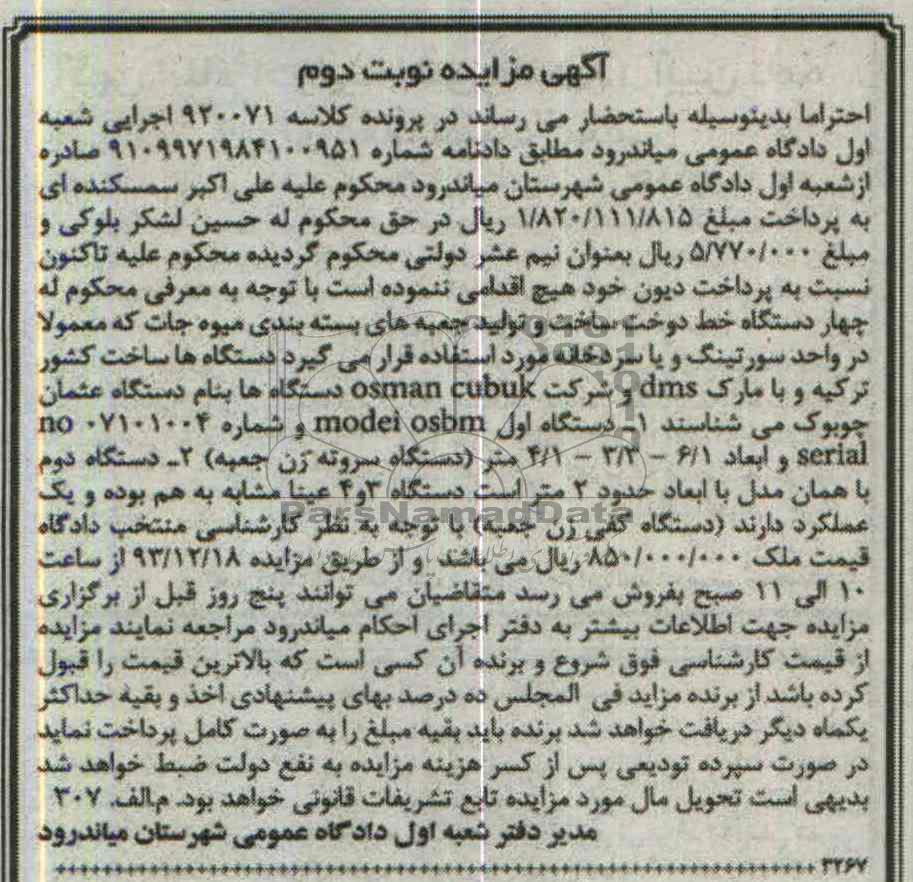 آگهی مزایده نوبت دوم
احتراما بدینوسیله باستحضار می رساند در پرونده کلاسه ۹۲۰۰۷۱ اجرایی شعبه
اول دادگاه عمومی میاندرود مطابق دادنامه شماره ۹۱۰۹۹۷۱۹۸۴۱۰۰۹۵۱ صادره
ازشعبه اول دادگاه عمومی شهرستان میاندرود محکوم علیه علی اکبر سمسکنده ای
به پرداخت مبلغ ۱/۸۲۰/۱۱۱/۸۱۵ ریال در حق محکوم له حسین لشکر بلوکی و
مبلغ ۵/۷۷۰/۰۰۰ ریال بعنوان نیم عشر دولتی محکوم گردیده محکوم علیه تاکنون
نسبت به پرداخت دیون خود هیچ اقدامی ننموده است با توجه به معرفی محکوم له
چهار دستگاه خط دوخت ساخت و تولید جعبه های بسته بندی میوه جات که معمولا
در واحد سورتینگ و یا سردخانه مورد استفاده قرار می گیرد دستگاه ها ساخت کشور
ترکیه و با مارک dms و شرکت osman cubuk دستگاه ها بنام دستگاه عثمان
چوبوک می شناسند ۱ـ دستگاه اول modei osbm و شماره ۰۷۱۰۱۰۰۴ no
serial و ابعاد ۶/۱ – ۳/۳ – ۴/۱ متر (دستگاه سروته زن جعبه) ۲ـ دستگاه دوم
با همان مدل با ابعاد حدود ۲ متر است دستگاه ۳و۴ عینا مشابه به هم بوده و یک
عملکرد دارند (دستگاه کفی زن جعبه) با توجه به نظر کارشناسی منتخب دادگاه
قیمت ملک ۸۵۰/۰۰۰/۰۰۰ ریال می باشد و از طریق مزایده ۹۳/۱۲/۱۸ از ساعت
۱۰ الی ۱۱ صبح بفروش می رسد متقاضیان می توانند پنج روز قبل از برگزاری
مزایده جهت اطلاعات بیشتر به دفتر اجرای احکام میاندرود مراجعه نمایند مزایده
از قیمت کارشناسی فوق شروع و برنده آن کسی است که بالاترین قیمت را قبول
کرده باشد از برنده مزاید فی المجلس ده درصد بهای پیشنهادی اخذ و بقیه حداکثر
یکماه دیگر دریافت خواهد شد برنده باید بقیه مبلغ را به صورت کامل پرداخت نماید
در صورت سپرده تودیعی پس از کسر هزینه مزایده به نفع دولت ضبط خواهد شد
بدیهی است تحویل مال مورد مزایده تابع تشریفات قانونی خواهد بود. م.الف. ۳۰۷
مدیر دفتر شعبه اول دادگاه عمومی شهرستان میاندرود
۳۲۶۷
ParsNamadData